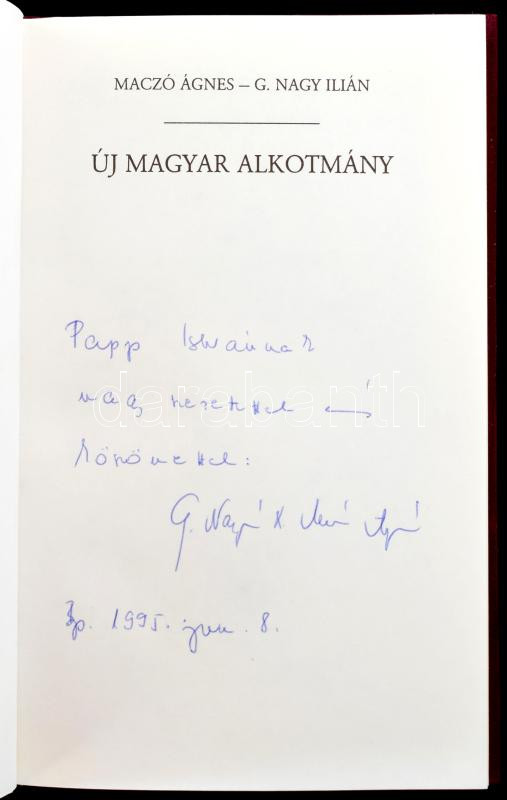 MACZÓ ÁGNES – G. NAGY ILIÁN
ÚJ MAGYAR ALKOTMÁNY
Papp Istvánnak
nagy szeretettel és
örömmel:
darabanth
G. Nagy
Bp. 1995. jun. 8.